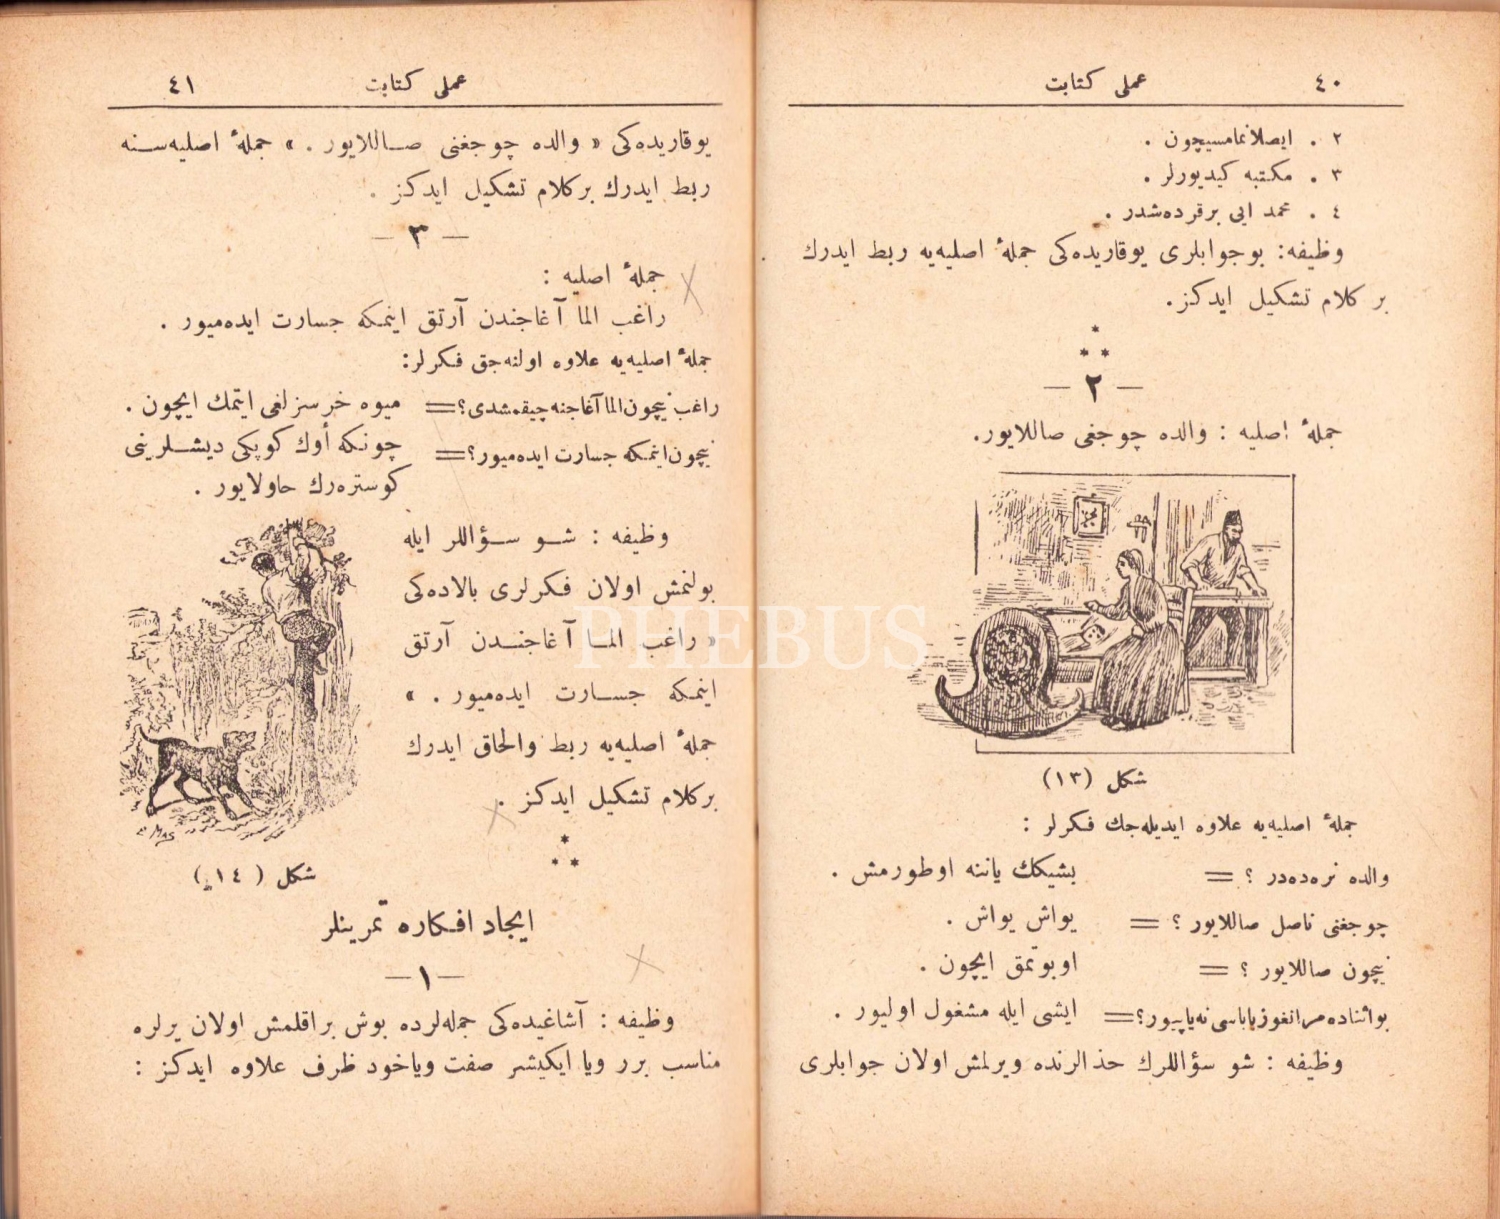 ٤٠
عملی كتابت
٢ . ایصلانمامسیچون .
٣ . مكتبه كیدیورلر .
٤ . محمد ایی برقرده‌شدر .
وظیفه: بو جوابلری یوقاریده‌كی جملهٔ اصلیه‌یه ربط ایدرك
بر كلام تشكیل ایدكز.
*
* *
— ٢ —
جملهٔ اصلیه : والده چوجغی صاللایور.
شكل (١٣)
جملهٔ اصلیه‌یه علاوه ایدیله‌جك فكرلر :
والده نره‌ده‌در ؟ = بشیكك یاننه اوطورمش .
چوجغنی ناصل صاللایور ؟ = یواش یواش .
نیچون صاللایور ؟ = اویوتمق ایچون .
بو اثناده مرانغوز باباسی نه یاپیور؟ = ایشی ایله مشغول اولیور .
وظیفه : شو سؤاللرك حذالرنده ویرلمش اولان جوابلری
عملی كتابت
٤١
یوقاریده‌كی « والده چوجغنی صاللایور . » جملهٔ اصلیه‌سنه
ربط ایدرك بركلام تشكیل ایدكز .
— ٣ —
جملهٔ اصلیه :
راغب الما آغاجندن آرتق اینمكه جسارت ایده‌میور .
جملهٔ اصلیه‌یه علاوه اولنه‌جق فكرلر:
راغب نیچون الما آغاجنه چیقمشدی؟ = میوه خرسزلغی ایتمك ایچون .
نیچون اینمكه جسارت ایده‌میور؟ = چونكه أوك كوپكی دیشلرینی
كوستره‌رك حاولایور .
وظیفه : شو سؤاللر ایله
بولنمش اولان فكرلری بالاده‌كی
« راغب الما آغاجندن آرتق
اینمكه جسارت ایده‌میور . »
جملهٔ اصلیه‌یه ربط والحاق ایدرك
بركلام تشكیل ایدكز .
*
* *
شكل (١٤)
ایجاد افكاره تمرینلر
— ١ —
وظیفه : آشاغیده‌كی جمله‌لرده بوش براقلمش اولان یرلره
مناسب برر ویا ایكیشر صفت ویاخود ظرف علاوه ایدكز :
PHEBUS